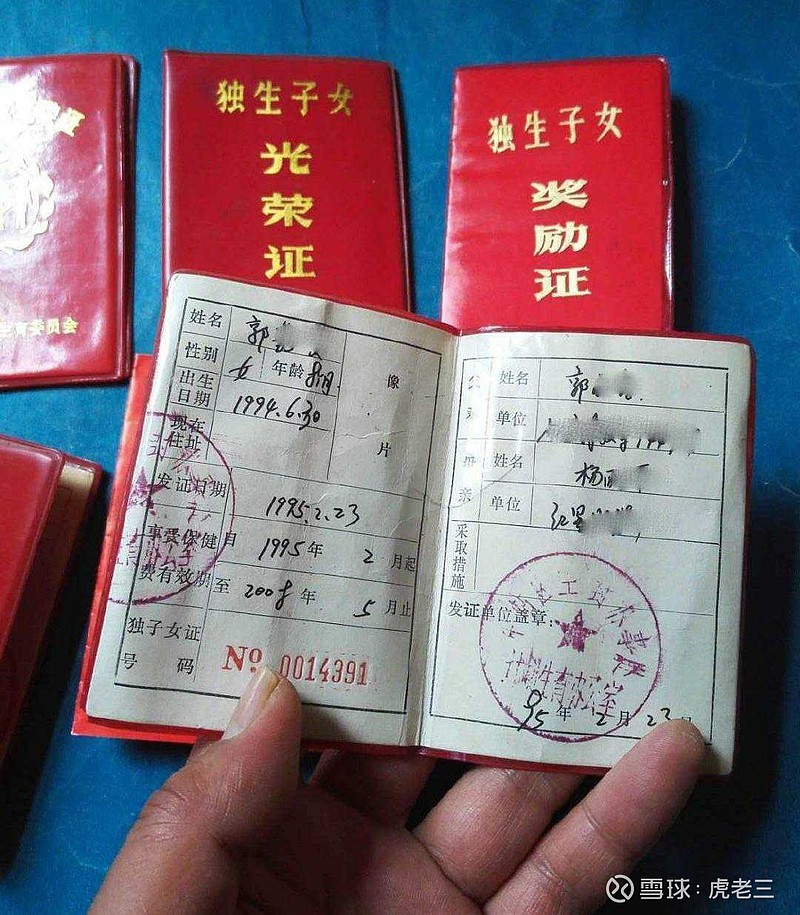 生育委员会
独生子女
光
荣
证
独生子女
奖
励
证
姓名 郭
性别 女 年龄
出生日期 1994.6.30
像
片
现在住址
发证日期 1995.2.23
享受保健费有效期
自 1995年 2月起
至 2008年 5月止
独子女证号码
No 0014391
父亲
姓名 郭
单位
母亲
姓名 杨
单位 红星
采取措施
发证单位盖章:
计划生育办公室
95年 2月 23日
雪球:虎老三